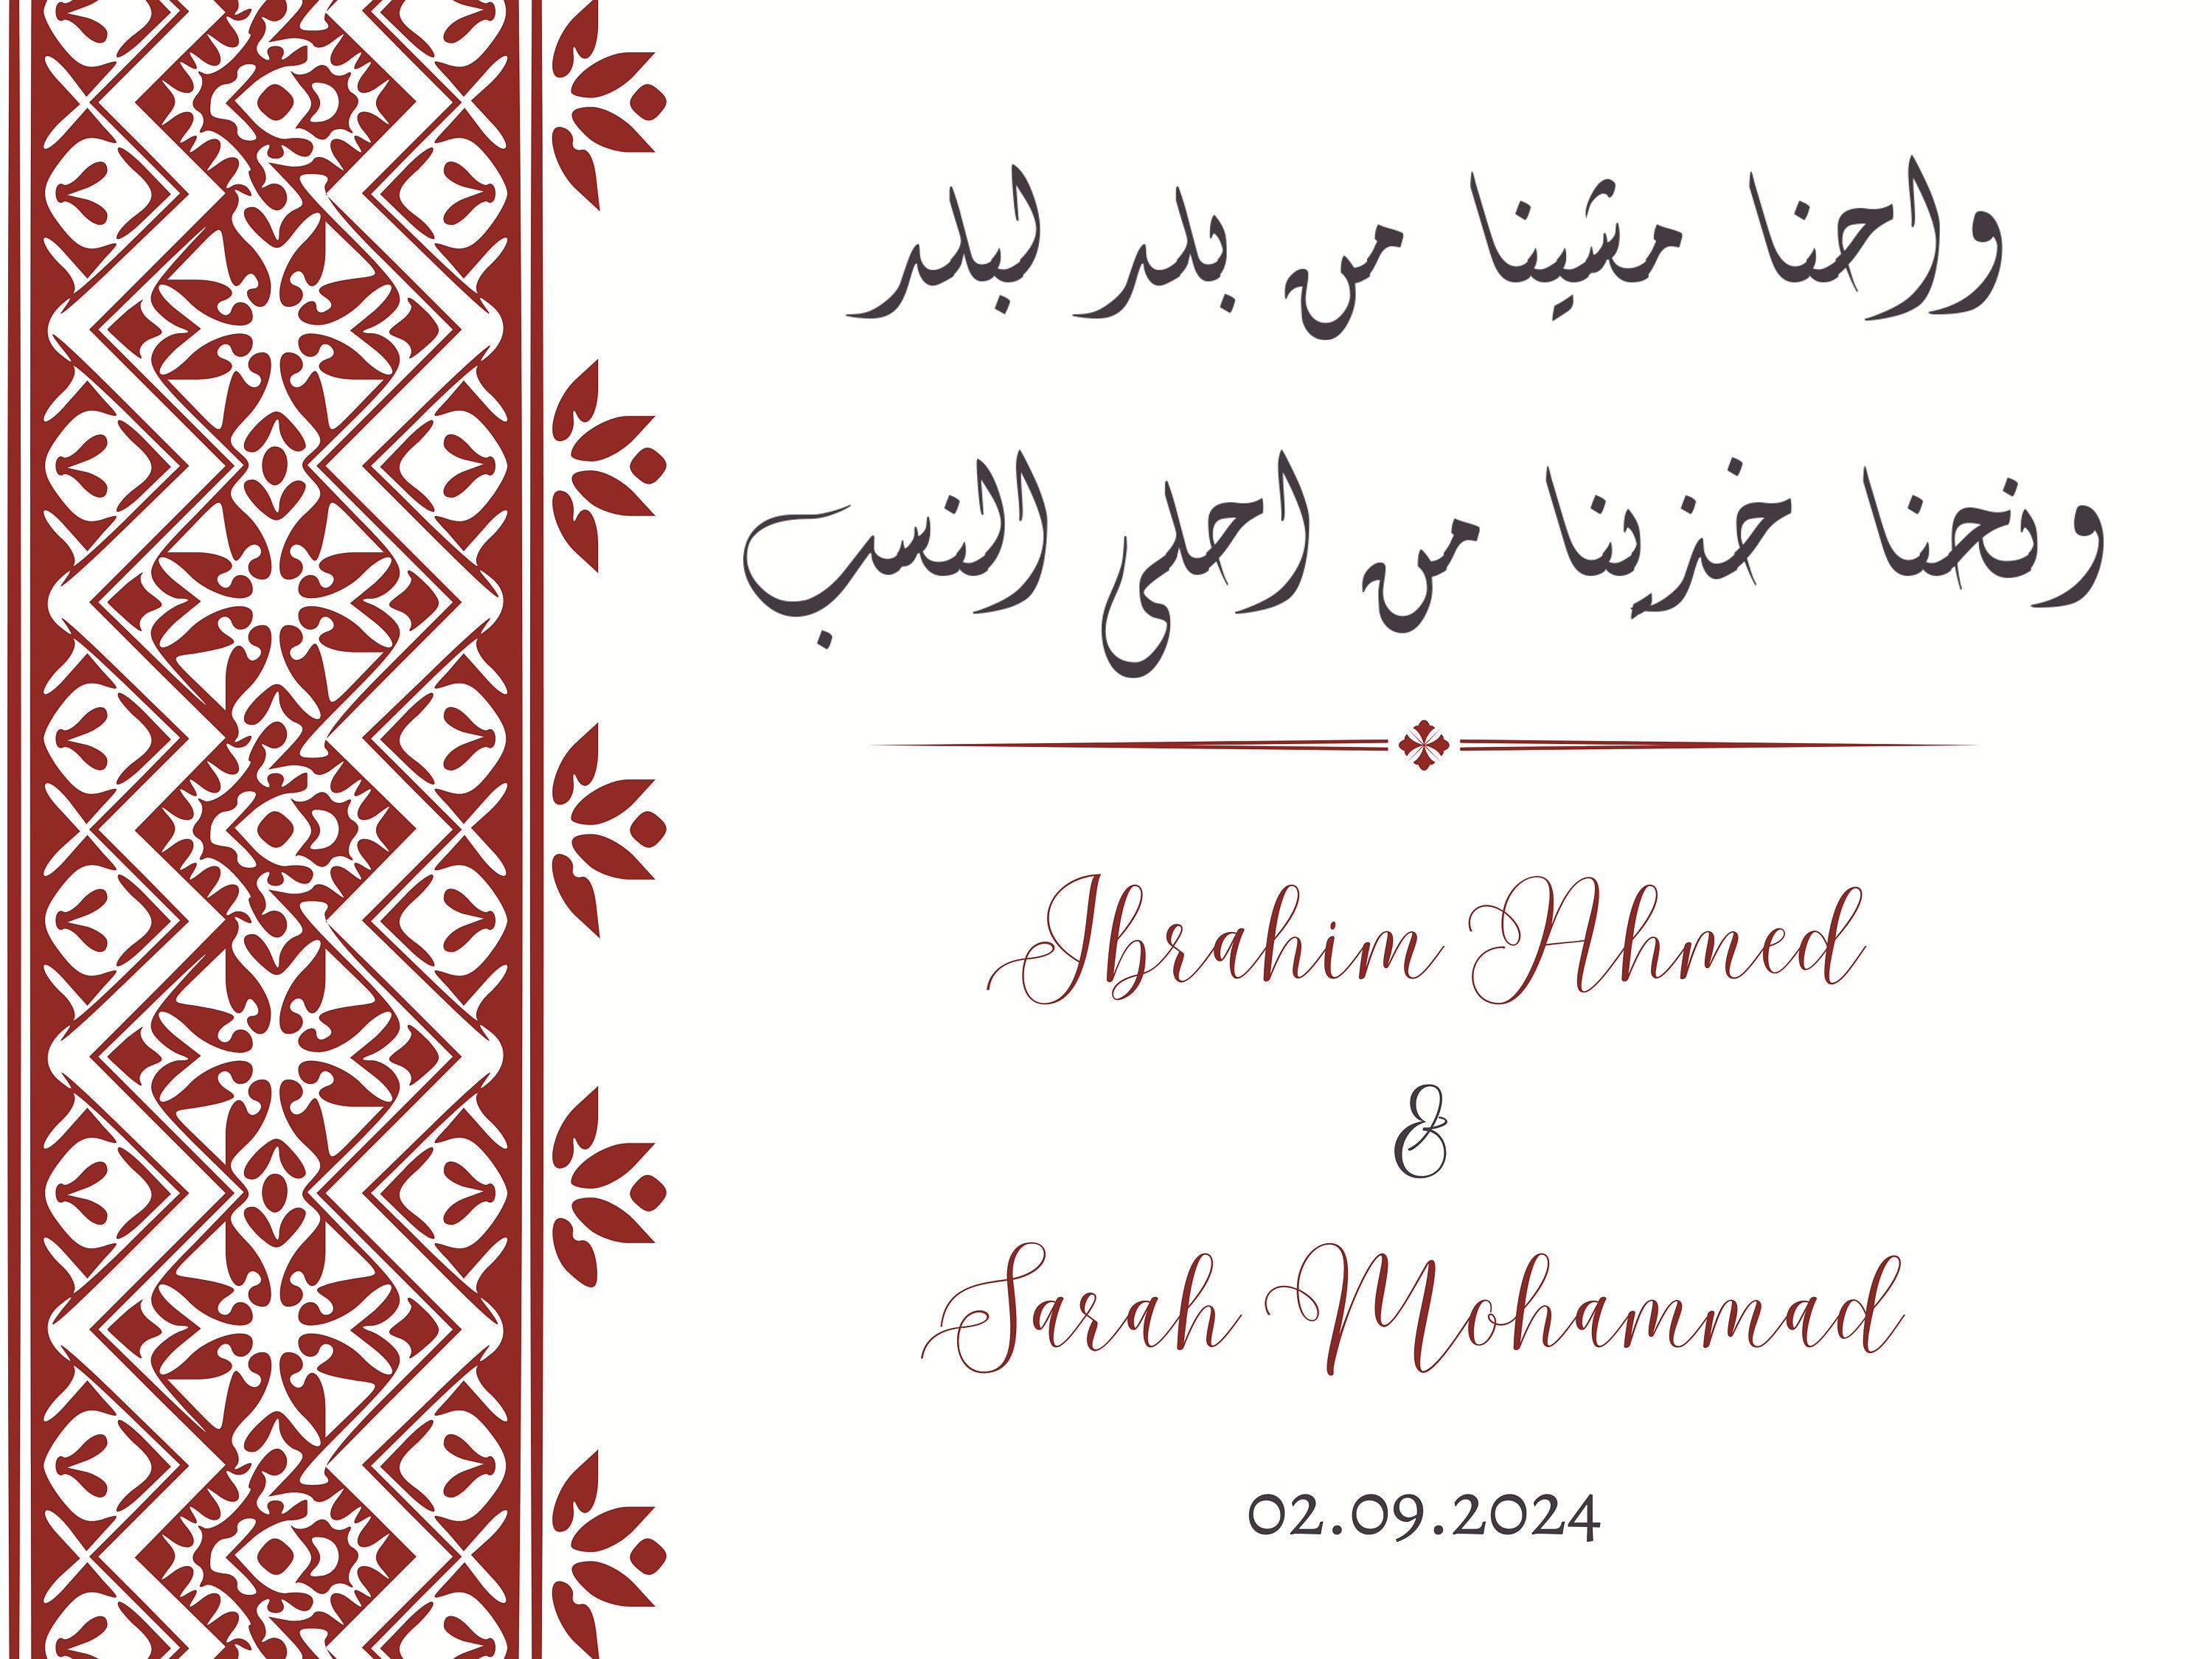 واحنا مشينا من بلد لبلد
ونحنا خذينا من احلى النسب
Ibrahim Ahmed
&
Sarah Mohammad
02.09.2024